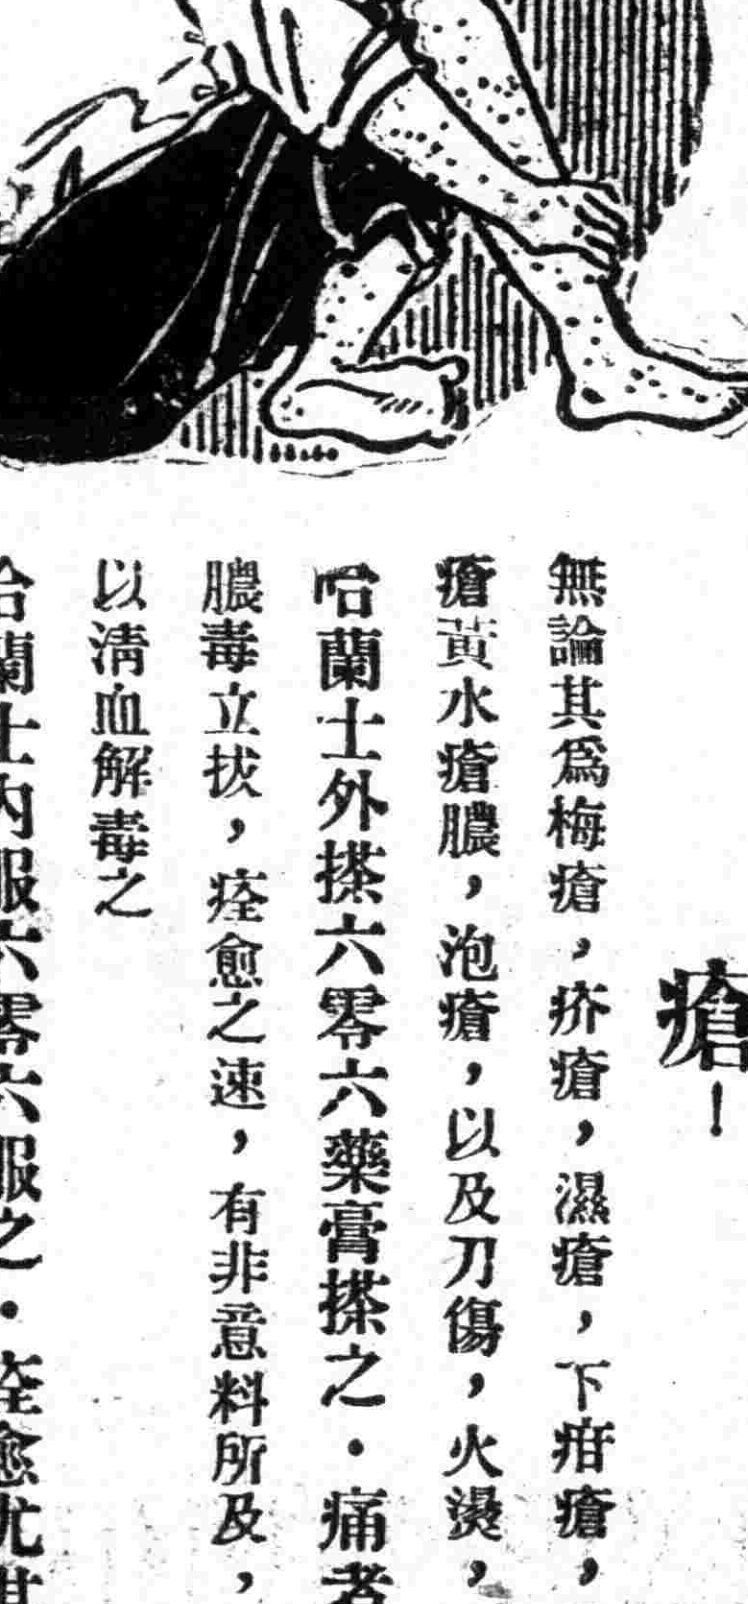 瘡！
無論其爲梅瘡，疥瘡，濕瘡，下疳瘡，
瘡黃水瘡膿，泡瘡，以及刀傷，火燙，
哈蘭士外搽六零六藥膏搽之・痛者
膿毒立拔，痊愈之速，有非意料所及，
以淸血解毒之
哈蘭士內服六零六服之・痊愈尤